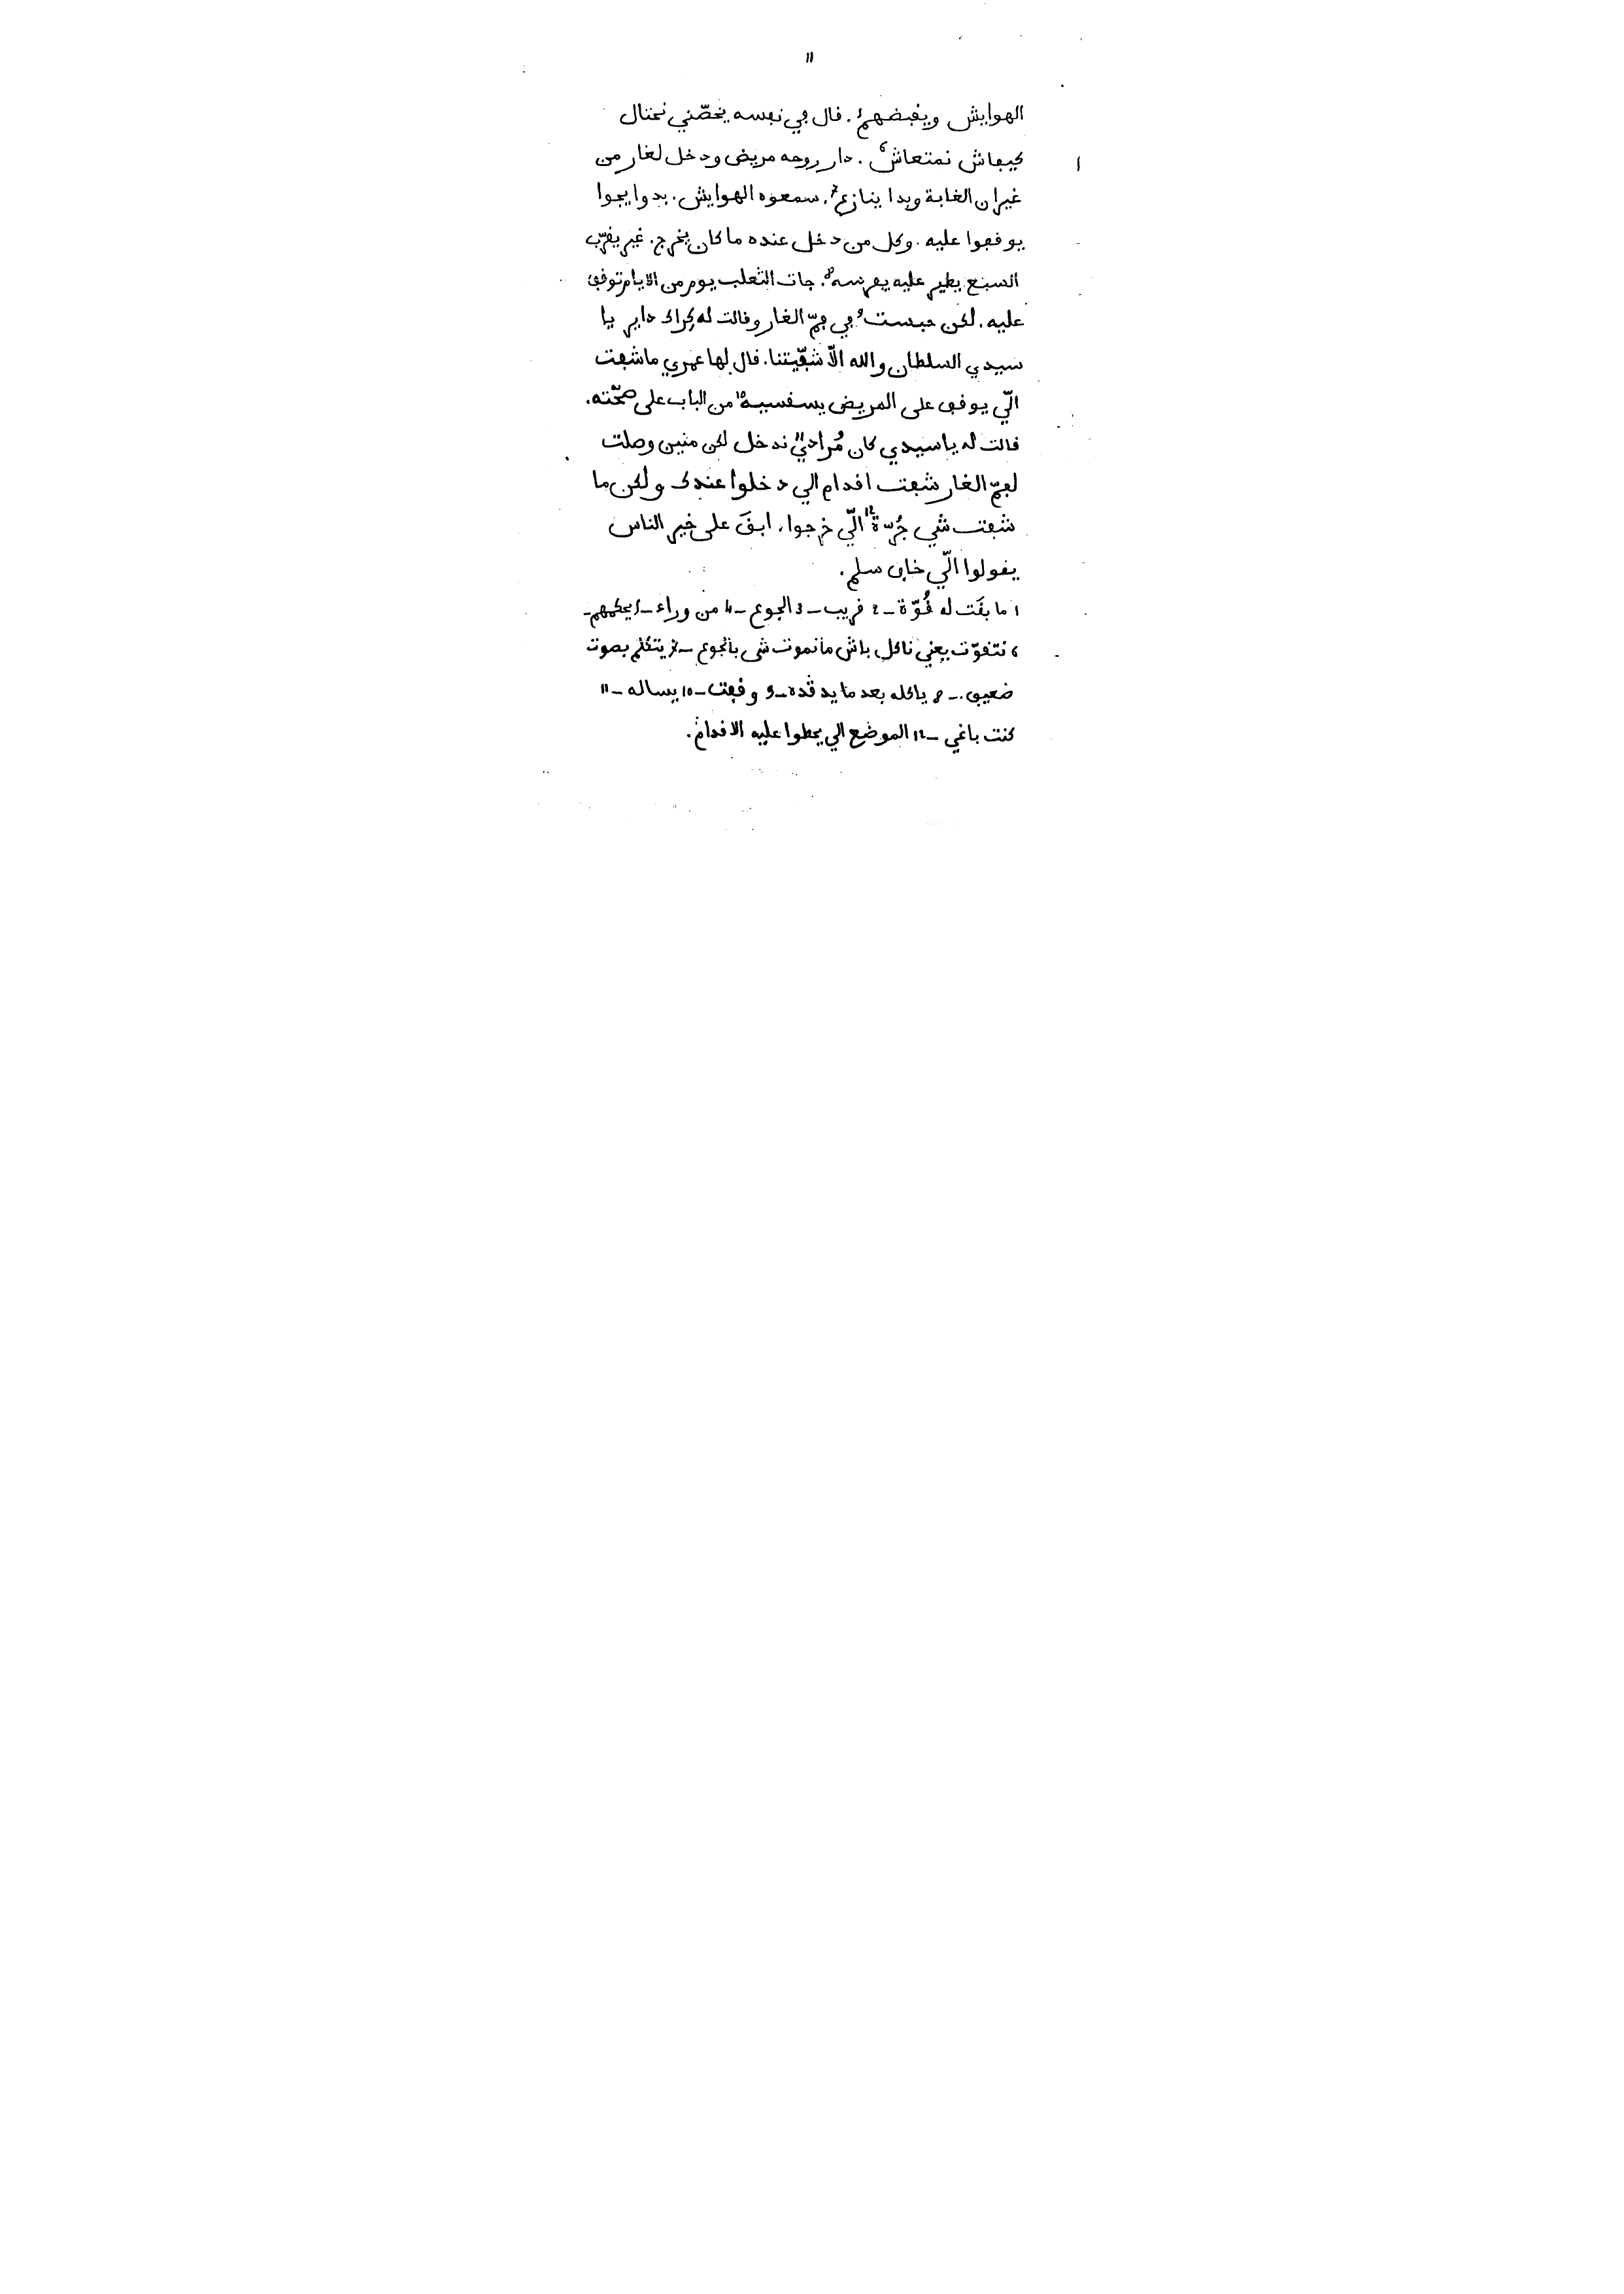 11
الهوايش ويقبضهم5. قال في نفسه يخصّني نحتال
كيفاش نمتعاش6. دار روحه مريض ودخل لغار من
غيران الغابة وبدا ينازع7. سمعوه الهوايش. بدوا يجوا
يوقفوا عليه. وكل من دخل عنده ما كان يخرج. غير يقرّب
السبع يطير عليه يفرسه8. جات الثعلب يوم من الايام توقف
عليه. لكن حبست9 في فمّ الغار وقالت له كراك داير يا
سيدي السلطان والله الاّ شقّيتنا. قال لها عمري ما شفت
الّي يوقف على المريض يسقسيه10 من الباب على صحّته.
قالت له يا سيدي كان مُرادي11 ندخل لكن منين وصلت
لفمّ الغار شفت اقدام الي دخلوا عندك ولكن ما
شفت شي جُرّة12 الّي خرجوا. ابقَ على خير الناس
يقولوا الّي خاف سلم.
1 ما بقَت له قُوّة - 2 قريب - 3 الجوع - 4 من وراء - 5 يحكمهم -
6 نتقوّت يعني ناكل باش ما نموت شي بالجوع - 7 يتكلّم بصوت
ضعيف. - 8 ياكله بعد ما يدقّده - 9 وقفت - 10 يساله - 11
كنت باغي - 12 الموضع الي يحطوا عليه الاقدام.